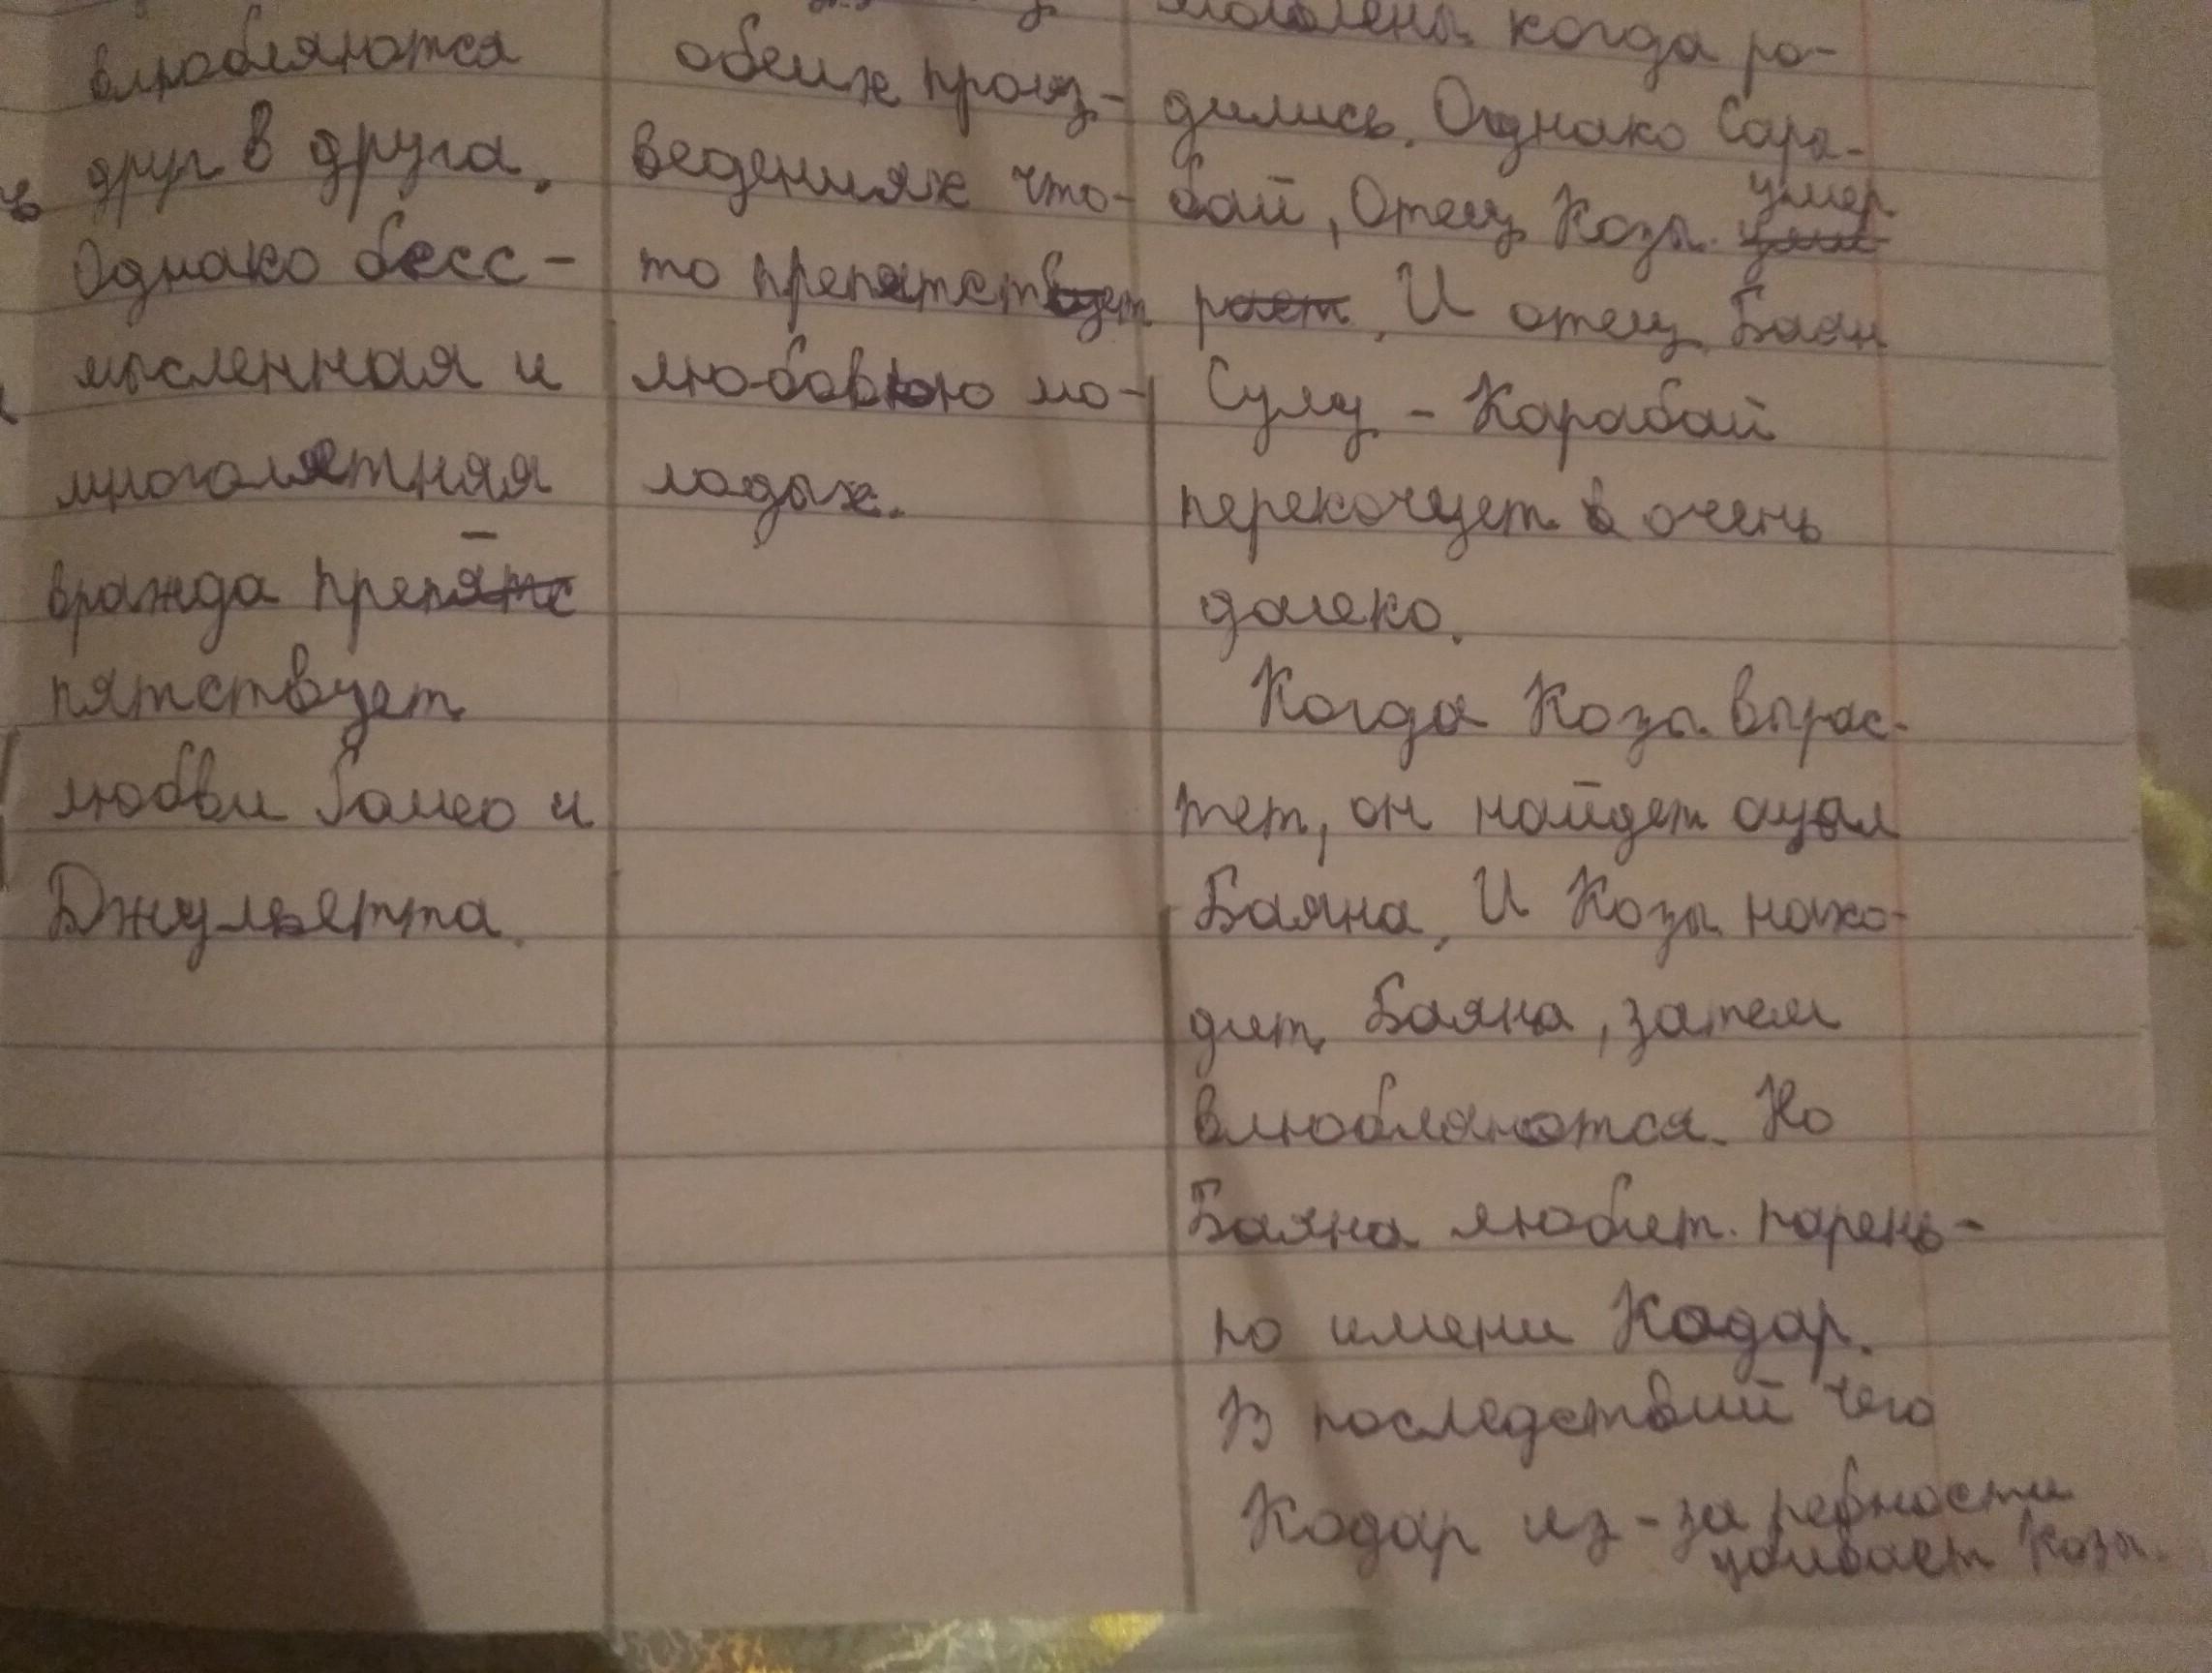 влюбляются
друг в друга.
Однако бесс-
мысленная и
многолетняя
вражда преп
пятствует
любви Ромео и
Джульетта.
обеих произ-
ведениях что-
то препятствует
любовью мо-
лодых.
когда ро-
дились. Однако Сара-
бай, Отец Козы умер
. И отец Баян
Сулу - Карабай
перекочует в очень
далеко.
Когда Козы вырас-
тет, он найдет ауал
Баяна, И Козы нахо-
дит Баяна, затем
влюбляются. Но
Баяна любит парень-
по имени Кодар.
В последствий чего
Кодар из-за ревности
убивает Козы.